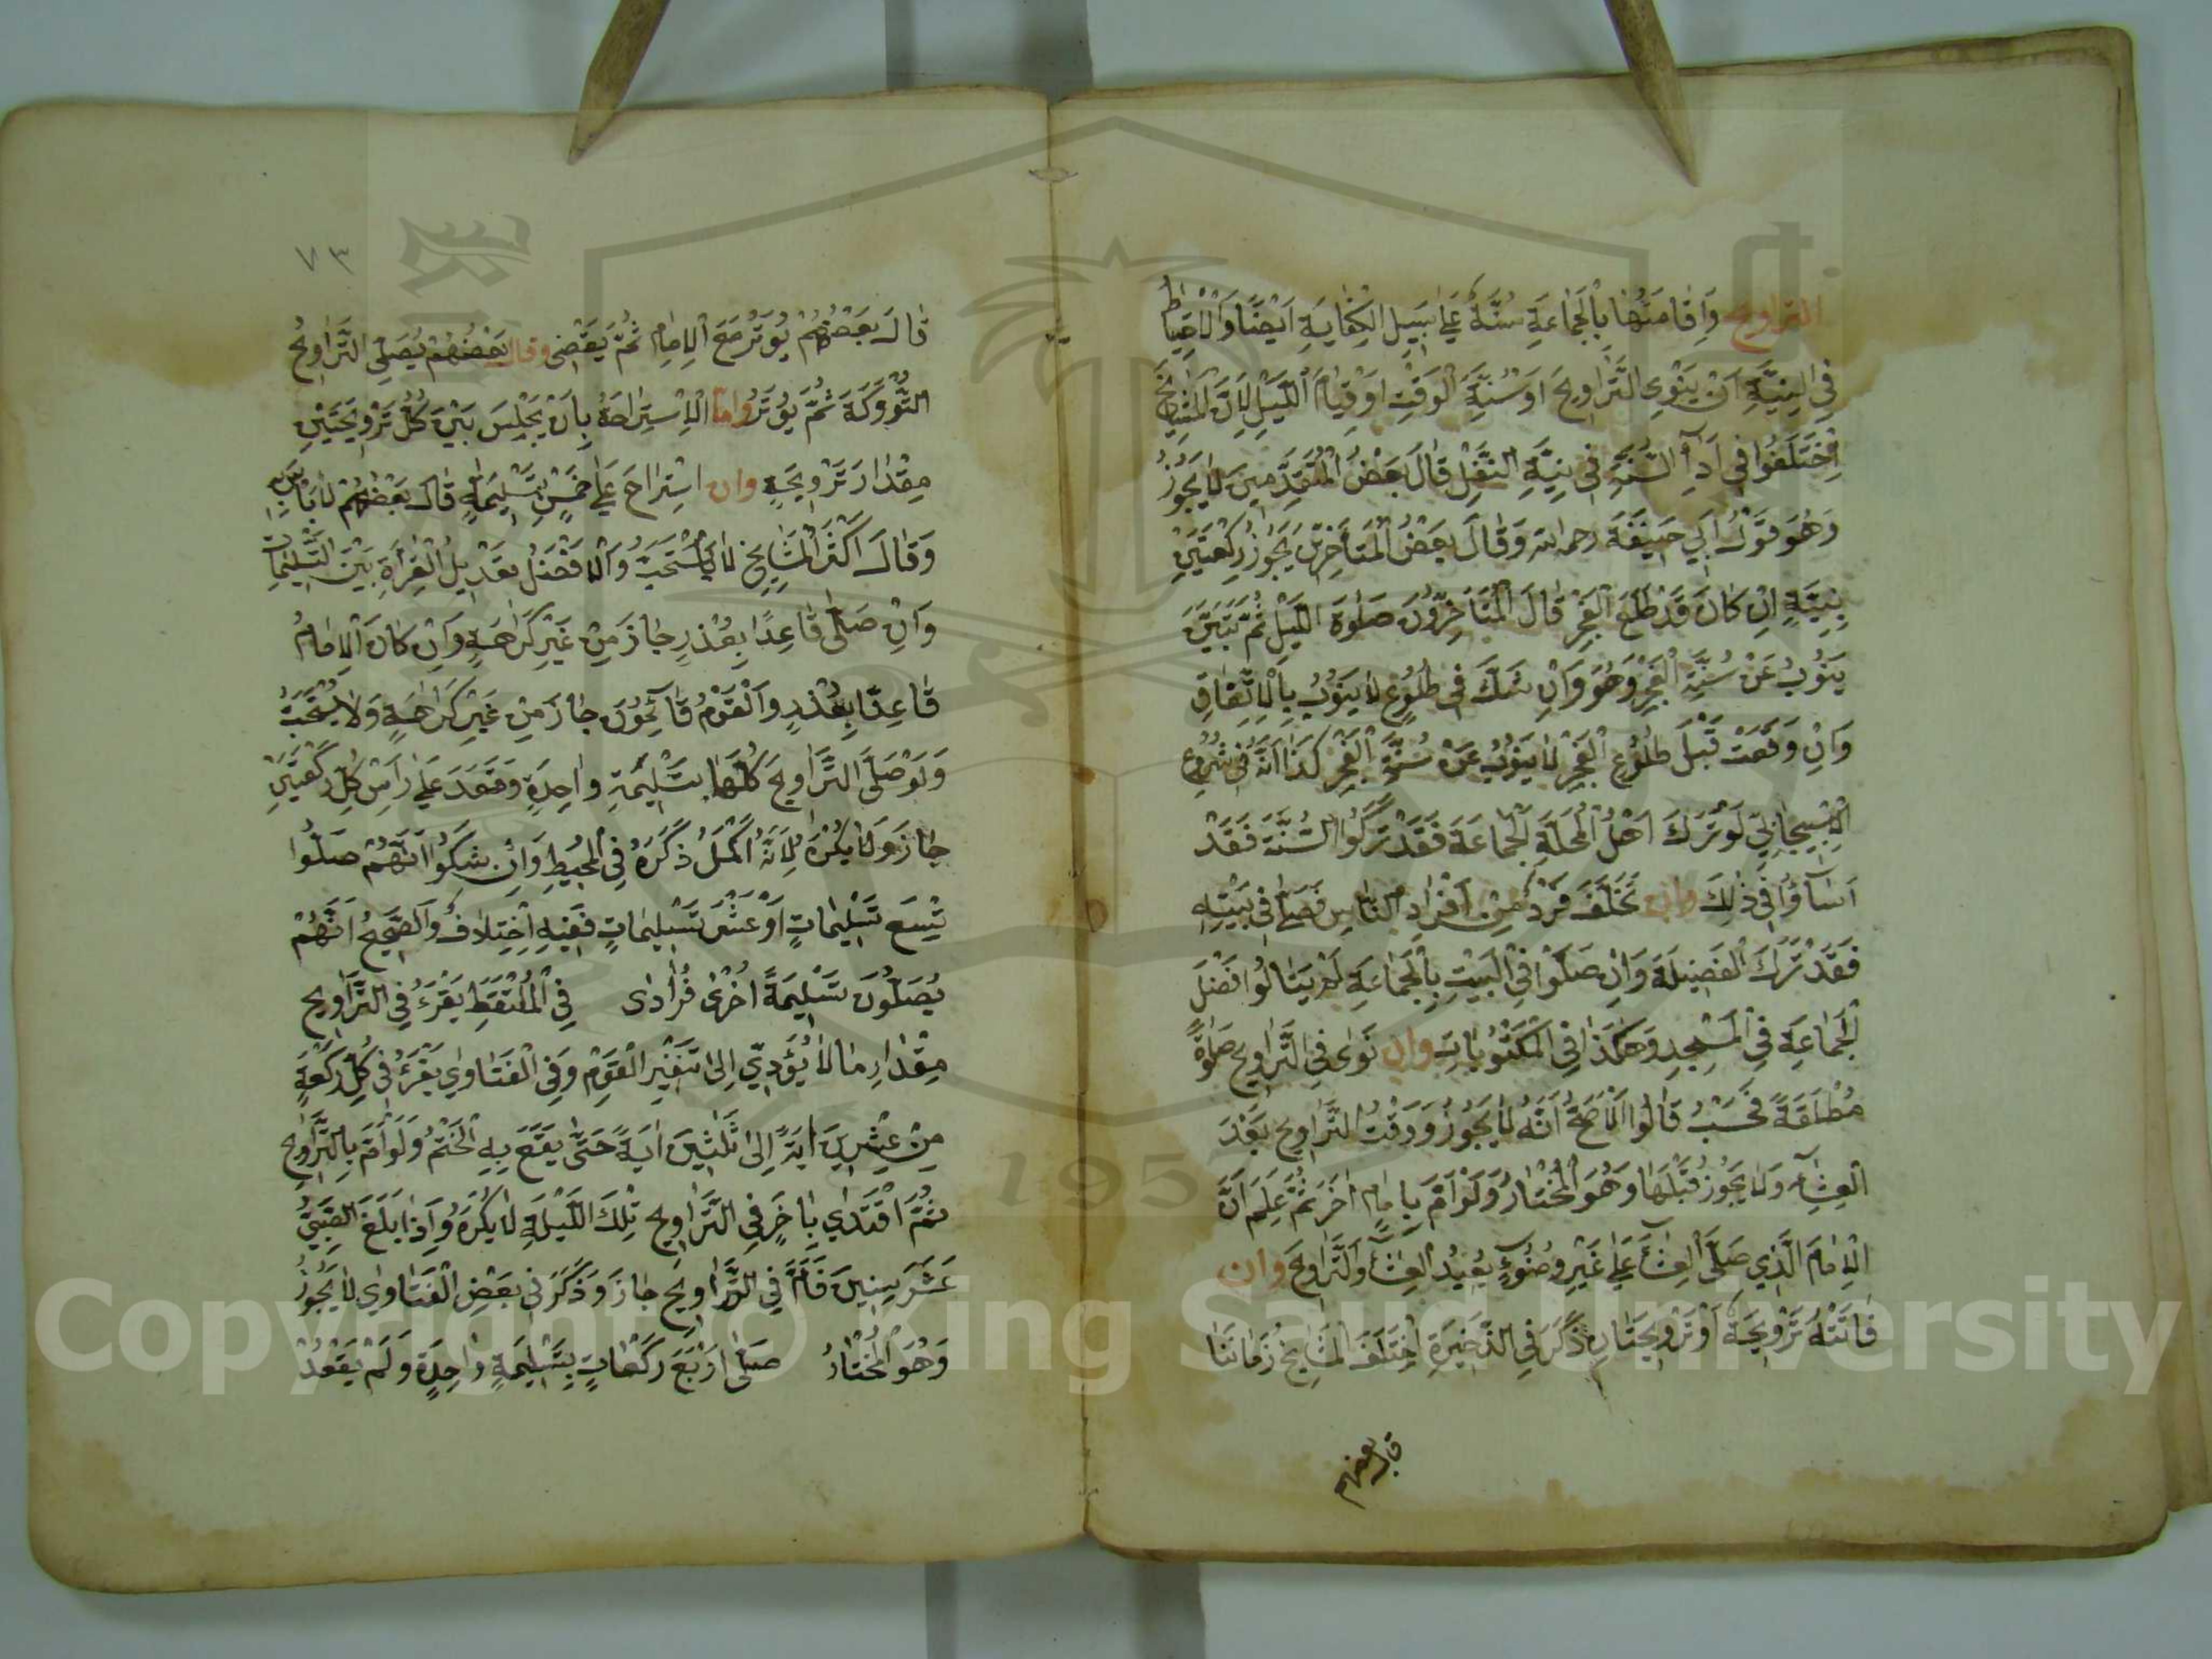 التراويح وَاِقَامَتُهَا بِالْجَمَاعَةِ سُنَّةٌ عَلٰى سَبِيلِ الْكِفَايَةِ اَيْضًا وَالْاِحْتِيَاطُ
فِى النِّيَّةِ اَنْ يَنْوِىَ التَّرَاوِيحَ اَوْ سُنَّةَ الْوَقْتِ اَوْ قِيَامَ اللَّيْلِ لِاَنَّ الْمَشَايِخَ
اِخْتَلَفُوا فِى اَدَاءِ السُّنَّةِ فِى نِيَّةِ النَّفْلِ قَالَ بَعْضُ الْمُتَقَدِّمِينَ لَا يَجُوزُ
وَهُوَ قَوْلُ اَبِي حَنِيفَةَ رحمه الله وَقَالَ بَعْضُ الْمُتَأَخِّرِينَ يَجُوزُ رَكْعَتَيْنِ
بِنِيَّةِ اِنْ كَانَ قَدْ طَلَعَ الْفَجْرُ قَالَ الْمُتَأَخِّرُونَ صَلٰوةَ اللَّيْلِ ثُمَّ تَبَيَّنَ
يَنُوبُ عَنْ سُنَّةِ الْفَجْرِ وَهُوَ وَاِنْ شَكَّ فِى طُلُوعِ لَا يَنُوبُ بِالْاِتِّفَاقِ
وَاِنْ وَقَعَتْ قَبْلَ طُلُوعِ الْفَجْرِ لَا يَنُوبُ عَنْ سُنَّةِ الْفَجْرِ كَذَا اَنَّهُ فِى شُرُوعِ
الْاِسْبِيجَابِيّ لَوْ تَرَكَ اَهْلُ الْمَحَلَّةِ الْجَمَاعَةَ فَقَدْ تَرَكُوا السُّنَّةَ فَقَدْ
اَسَاؤُا فِى ذٰلِكَ وان تَخَلَّفَ فَرْدٌ مِنْ اَفْرَادِ النَّاسِ فَصَلّٰى فِى بَيْتِهِ
فَقَدْ تَرَكَ الْفَضِيلَةَ وَاِنْ صَلَّوْا فِى الْبَيْتِ بِالْجَمَاعَةِ لَمْ يَنَالُوا فَضْلَ
الْجَمَاعَةِ فِى الْمَسْجِدِ وَهٰكَذَا فِى الْمَكْتُوبَاتِ وان نَوٰى فِى التَّرَاوِيحِ صَلٰوةً
مُطْلَقَةً فَحَسْبُ قَالُوا اَلْاَصَحُّ اَنَّهُ لَا يَجُوزُ وَوَقْتُ التَّرَاوِيحِ بَعْدَ
الْعِشَاءِ وَلَا يَجُوزُ قَبْلَهَا وَهُوَ الْمُخْتَارُ وَلَوْ اَمَّ بِاِمَامٍ اٰخَرَ ثُمَّ عَلِمَ اَنَّ
الْاِمَامَ الَّذِي صَلَّى الْعِشَاءَ عَلٰى غَيْرِ وُضُوءٍ يُعِيدُ الْعِشَاءَ وَالتَّرَاوِيحَ وان
فَاتَتْهُ تَرْوِيحَةٌ اَوْ تَرْوِيحَتَانِ ذَكَرَ فِى الذَّخِيرَةِ اِخْتَلَفَ الْمَشَايِخُ زَمَانِنَا
قال بعضهم
٧٣
قَالَ بَعْضُهُمْ يُوتِرُ مَعَ الْاِمَامِ ثُمَّ يَقْضِى وقال بَعْضُهُمْ يُصَلِّى التَّرَاوِيحَ
الْمَتْرُوكَةَ ثُمَّ يُوتِرُ واما الْاِسْتِرَاحَةُ بِاَنْ يَجْلِسَ بَيْنَ كُلِّ تَرْوِيحَتَيْنِ
مِقْدَارَ تَرْوِيحَةٍ وان اسْتِرَاحَ عَلٰى خَمْسِ تَسْلِيمَةٍ قَالَ بَعْضُهُمْ لَا بَأْسَ بِهِ
وَقَالَ اَكْثَرُ الْمَشَايِخِ لَا يُسْتَحَبُّ وَالْاَفْضَلُ تَعْدِيلُ الْقِرَأَةِ بَيْنَ التَّسْلِيمَاتِ
وَاِنْ صَلَّى قَاعِدًا بِعُذْرٍ جَازَ مِنْ غَيْرِ كَرَاهَةٍ وَاِنْ كَانَ الْاِمَامُ
قَاعِدًا بِعُذْرٍ وَالْقَوْمُ قَائِمُونَ جَازَ مِنْ غَيْرِ كَرَاهَةٍ وَلَا يُسْتَحَبُّ
وَلَوْ صَلَّى التَّرَاوِيحَ كُلَّهَا بِتَسْلِيمَةٍ وَاحِدَةٍ وَقَعَدَ عَلٰى رَأْسِ كُلِّ رَكْعَتَيْنِ
جَازَ وَلَا يُكْرَهُ لِاَنَّهُ اَكْمَلُ ذَكَرَهُ فِى الْمُحِيطِ وَاِنْ شَكُّوا اَنَّهُمْ صَلَّوْا
تِسْعَ تَسْلِيمَاتٍ اَوْ عَشْرَ تَسْلِيمَاتٍ فَفِيهِ اِخْتِلَافٌ وَالصَّحِيحُ اَنَّهُمْ
يُصَلُّونَ تَسْلِيمَةً اُخْرٰى فُرَادٰى فِى الْمُلْتَقَطِ يَقْرَءُ فِى التَّرَاوِيحِ
مِقْدَارِ مَا لَا يُؤَدِّي اِلٰى تَنْفِيرِ الْقَوْمِ وَفِى الْفَتَاوِي يَقْرَءُ فِى كُلِّ رَكْعَةٍ
مِنْ عِشْرِينَ اٰيَةً اِلٰى ثَلٰثِينَ اٰيَةً حَتّٰى يَقَعَ بِهِ الْخَتْمُ وَلَوْ اَمَّ بِالتَّرَاوِيحِ
ثُمَّ اقْتَدٰي بِاٰخَرٍ فِى التَّرَاوِيحِ تِلْكَ اللَّيْلَةِ لَا يُكْرَهُ وَاِذَا بَلَغَ الصَّبِيُّ
عَشْرَ سِنِينَ فَاَمَّ فِى التَّرَاوِيحِ جَازَ وَذَكَرَ فِى بَعْضِ الْفَتَاوٰى لَا يَجُوزُ
وَهُوَ الْمُخْتَارُ صَلّٰى اَرْبَعَ رَكَعَاتٍ بِتَسْلِيمَةٍ وَاحِدَةٍ وَلَمْ يَقْعُدْ
1957
Copyright © King Saud University